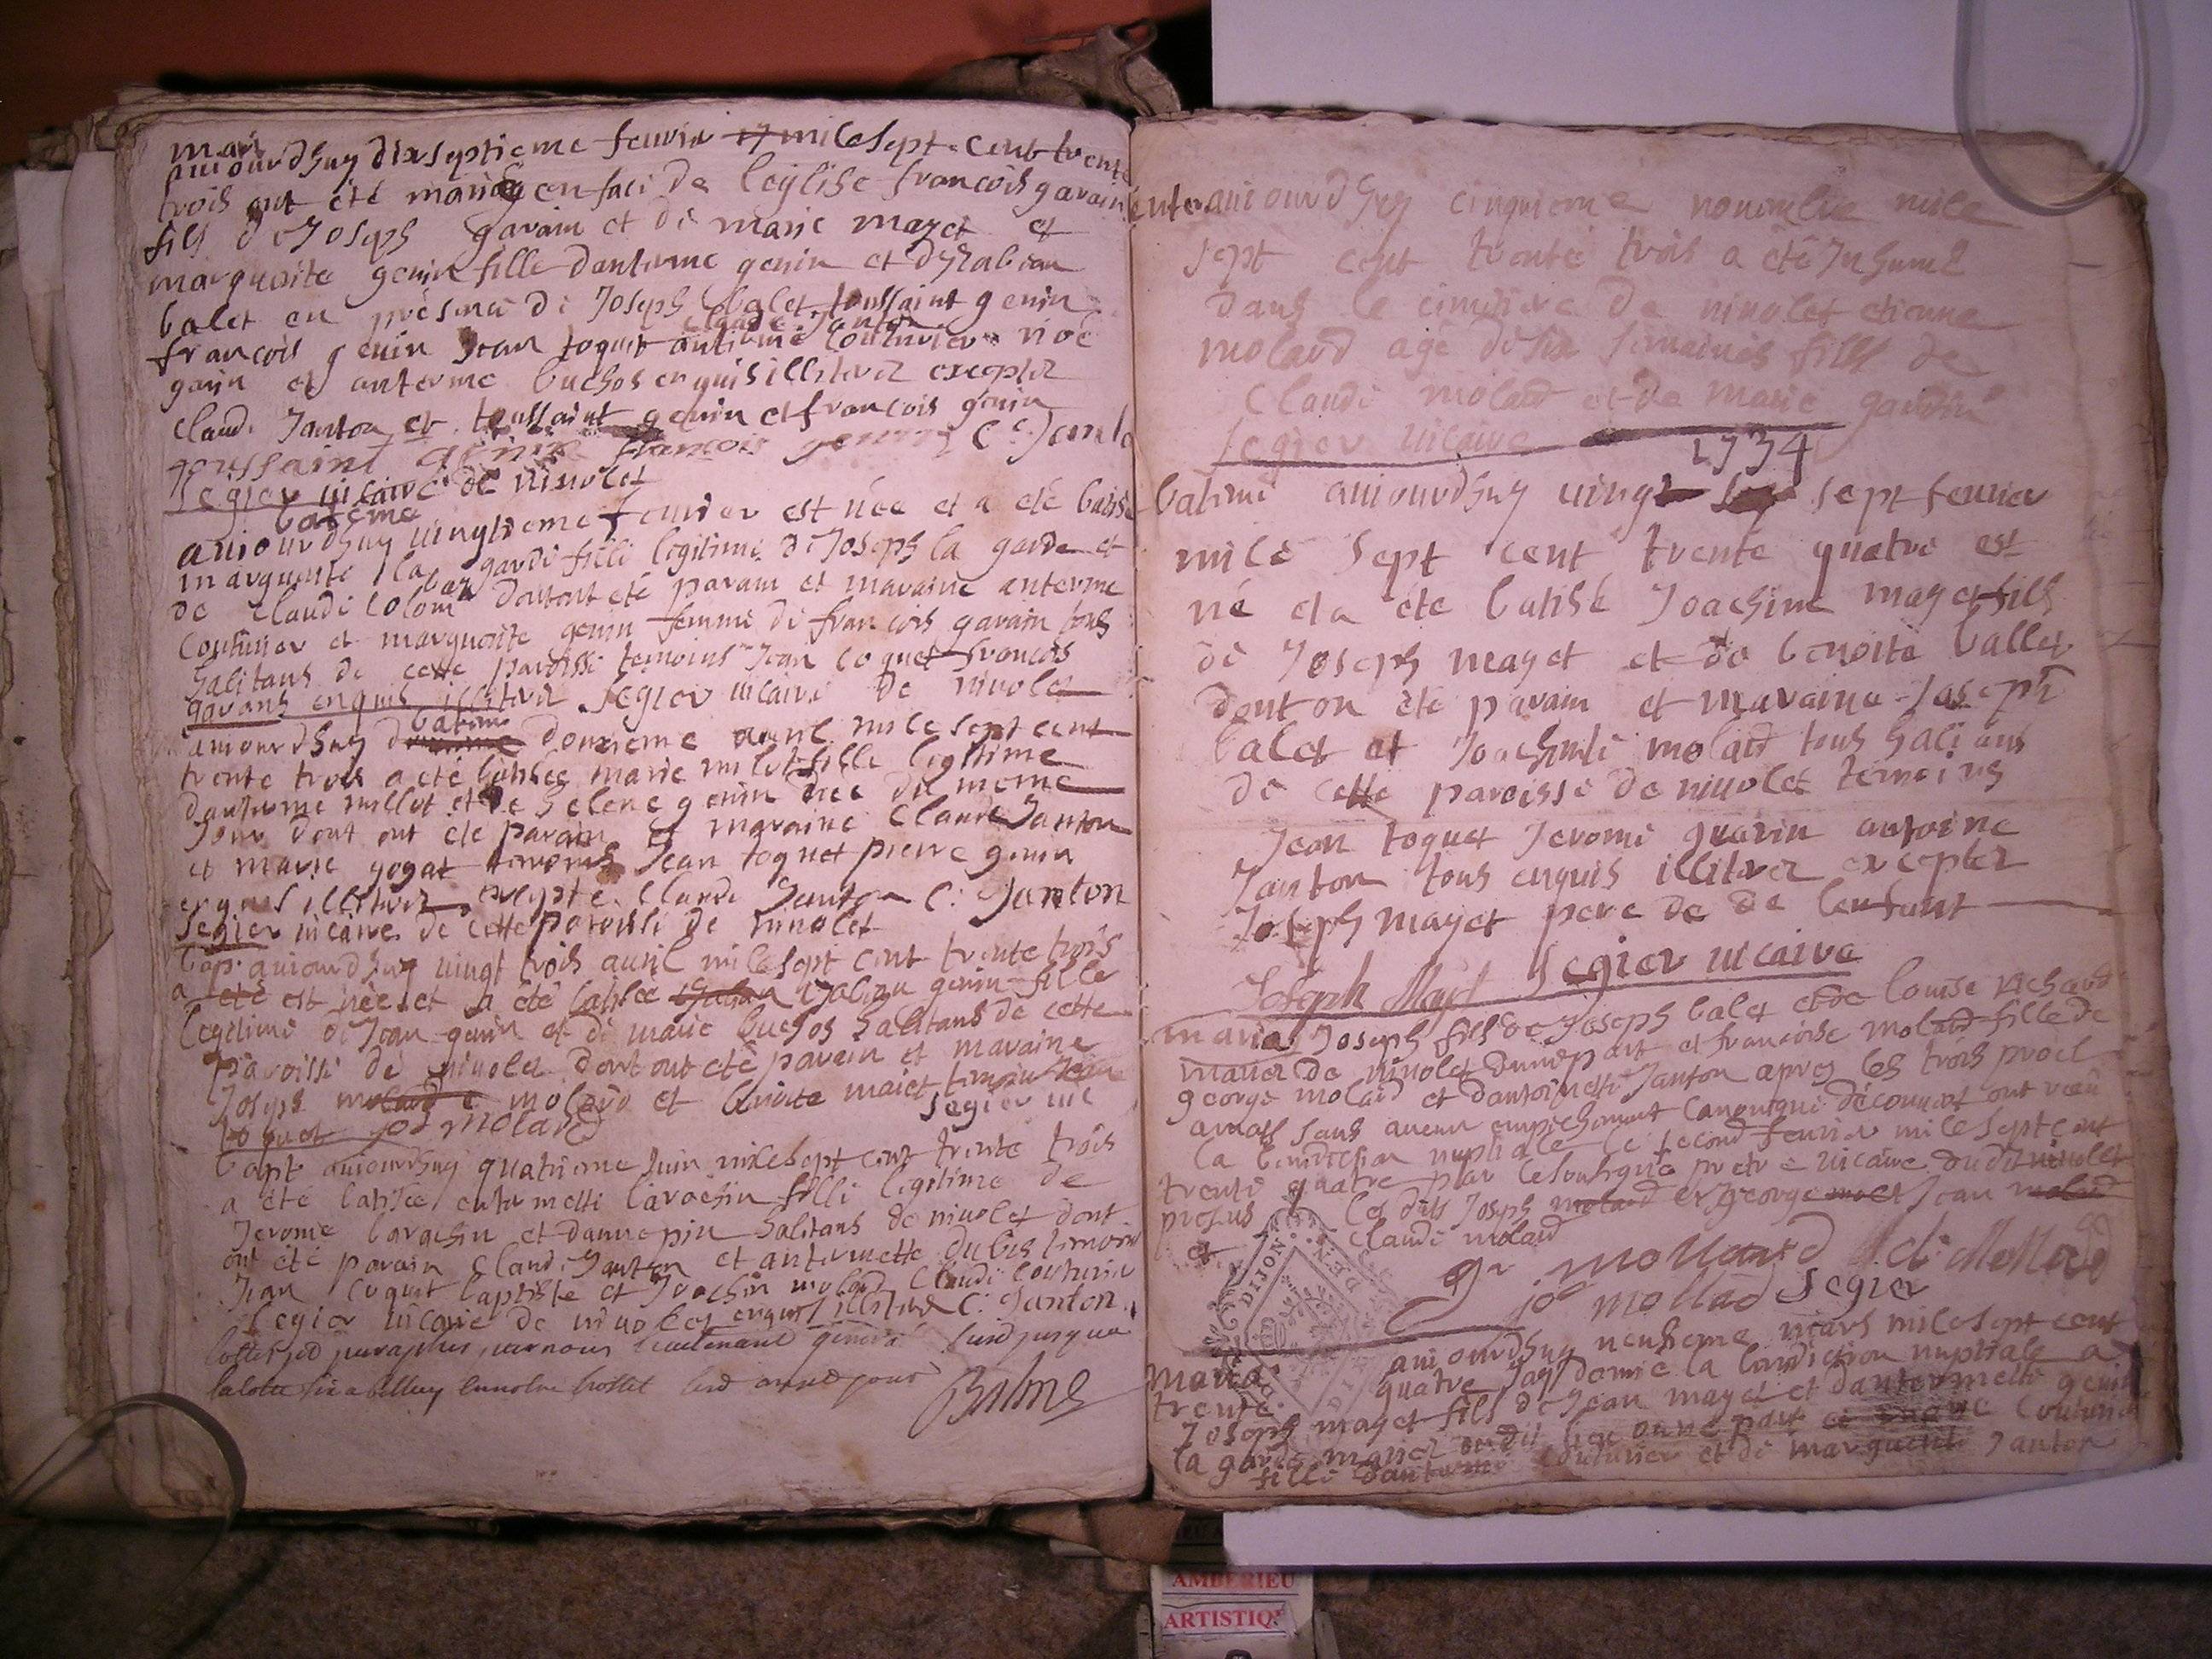 mari
auiourdhuy dixseptieme feurier 17 mile sept cent trente
trois ont été mariés en faci de leglise francois garain
fils de Joseph garain et de marie mayet et
marguerite genin fille danterme genin et dyzabeau
balet en presence di Joseph balet toussaint genin
claude Janton
francois genin Jean toquet anterme couturier noé
garin et anterme buchos enquis illiterez exceptez
claude Janton et toussaint genin et francois genin
toussaint genin francois genin C. Janton
Segier uicaire de niuolet
bateme
auiourdhuy uingtieme feurier est née et a eté batisé
marguerite la garde fille legitime de Joseph la garde et
de claudi colom dont ont été parain et maraine anterme
couturier et marguerite genin femme di francois garain tous
habitans de cette paroisse temoins Jean toquet francois
garans enquis illiterez Segier uicaire de niuolet
bateme
auiourdhuy douzieme auril mile sept cent
trente trois a eté batisée marie milot fille legitime
danterme millot et de helene genin née du meme
Jour dont ont eté parain et maraine Claude Janton
et marie gogat temoins Jean toquet pierre genin
enquis illiterez excepté Claude Janton C. Janton
Segier uicaire de cette paroisse de niuolet
bap. auiourdhuy uingt trois auril mile sept cent trente trois
a été est née et a été batisée ysabeau genin fille
legitime di Jean genin et di marie buchos habitans de cette
paroisse de niuolet dont ont eté parain et maraine
Joseph molard molard et benoite maiet temoin Jean
toquet jos molard Segier uic
bapt auiourdhuy quatrieme Juin mile sept cent trente trois
a été batisée entermette barachin fille legitime de
Jerome barachin et danne pin habitans de niuolet dont
ont été parain Claude Janton et antermette dubis temoins
Jean toquet baptiste et Joachin molard Claudi couturier
Segier uicaire de niuolet enquis illiterez C. Janton
cottes et paraphes par nous lieutenant general
Balme
enter auiourdhuy cinquieme nouembre mile
sept cent trente trois a été Inhumé
dans le cimitiere de niuolet etienne
molard agé de six semaines fils de
Claude molard et de marie gaudin
Segier uicaire
1734
bateme auiourdhuy uingt sept feurier
mile sept cent trente quatre est
né et a été batisé Joachim mayet fils
de Joseph mayet et de benoite ballet
dont on été parain et maraine Joseph
balet et Joachimle molard tous habi ans
de cette paroisse de niuolet temoins
Jean toquet Jerome guarin antoine
Janton tous enquis illiterez exceptez
Joseph mayet pere de de lenfant
Joseph Mayet Segier uicaire
maria Joseph fils de Joseph balet et de louise richard
mariez de niuolet dune part et francoise molard fille de
george molard et dantoinette Janton apres les trois procl
amass sans aucun empechement canonique decouuert ont receu
la benediction nuptiale le second feurier mile sept cent
trente quatre par le soubsigné pretre uicaire dudit niuolet
presens les dits Joseph molard et george molet Jean molard
et Claude molard
gr mollard cl. Mollard
jos mollad Segier
auiourdhuy neufieme mars mile sept cent
maria quatre Jay donné la benediction nuptiale a
trente
Joseph mayet fils de Jean mayet et dantermette genin
la garde mariez dudit lieu dune part et couturier
fille danterme couturier et de marguerite Janton
DIJON
DEN
AMBERIEU
ARTISTIQ